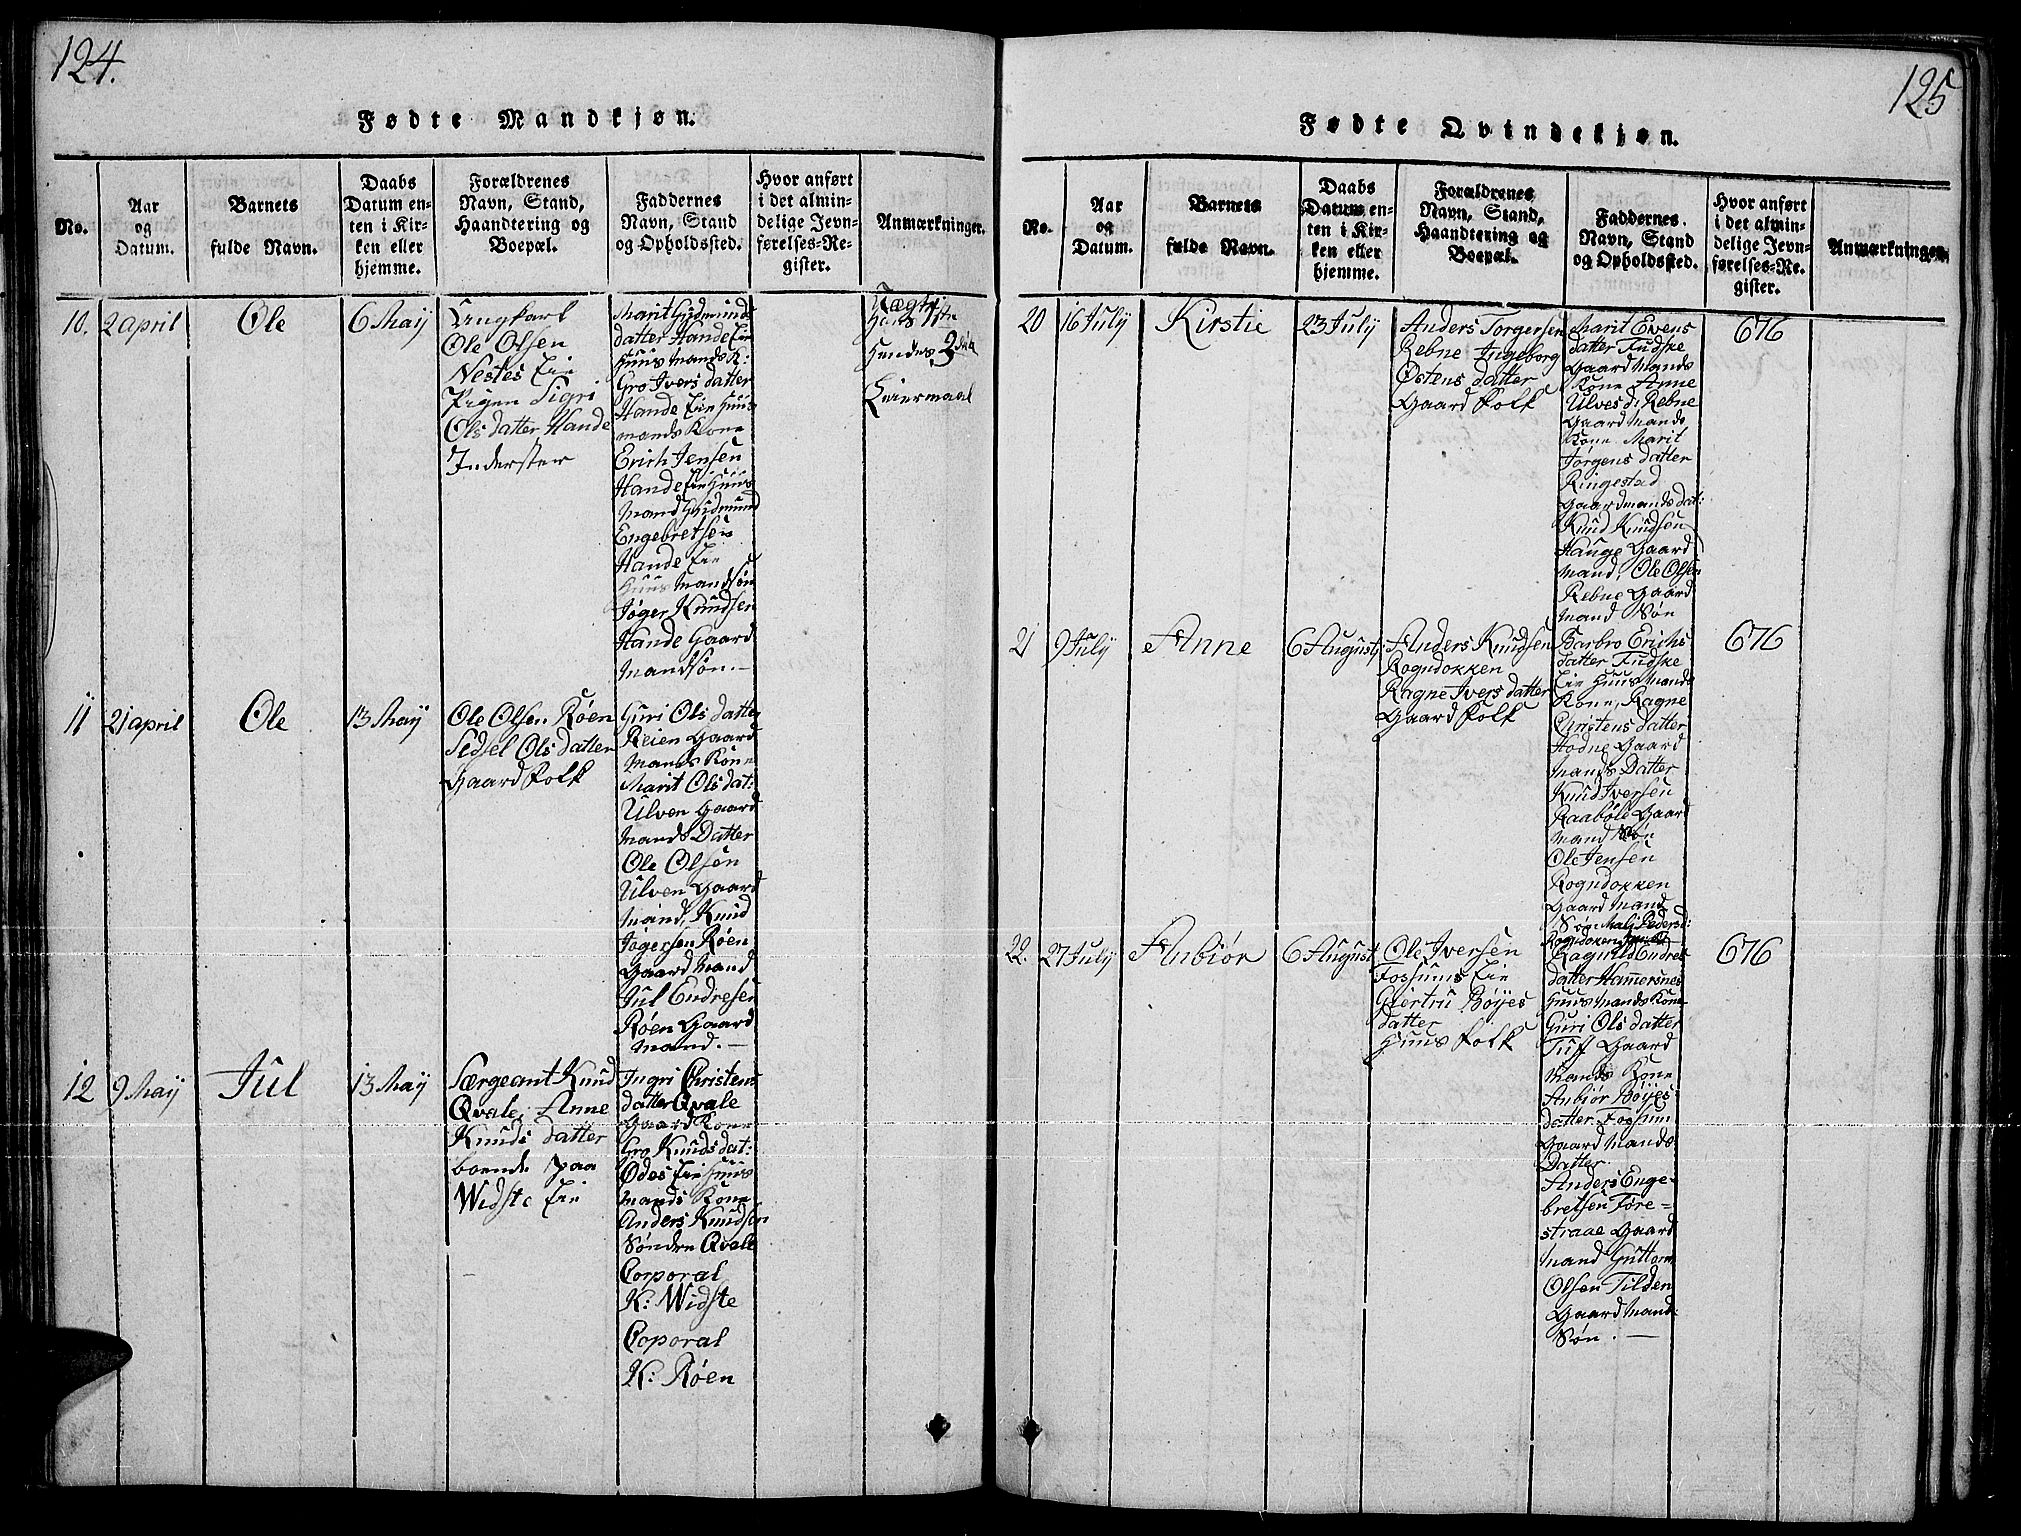 124.
Fødte Mandkjøn.
No.
Aar
og
Datum.
Barnets
fulde Navn.
Daabs
Datum en-
ten i Kir-
ken eller
hjemme.
Forældrenes
Navn, Stand,
Haandtering og
Boepæl.
Faddernes
Navn, Stand
og Opholdssted.
Hvor anført
i det almin-
delige Jevn-
førelses-Re-
gister.
Anmærkninger.
10.
2 april
Ole
6 Maÿ
Ungkarl
Ole Olsen
Nestes Eie
Pigen Sigri
Ols datter Hande
Inderster
Marit Gudmunds
datter Hande Eie
Huus mands K:
Gro Ivers datter
Hande Eie Huus
mands Kone
Erich Jensen
Hande Eie Huus
mand Gudmund
Engebretsen
Hande Eie
Huus mandsøn
Jøger Knudsen
Hande Gaard
mandsøn. —
Hans 1ste
Hendes 2det
Leiermaal
11
21 april
Ole
13 Maÿ
Ole Olsen Røen
Sidsel Ols datter
Gaard Folk
Guri Ols datter
Reien Gaard
mands Kone
Marit Ols dat:
Ulven Gaard
mands Datter
Ole Olsen
Ulven Gaard
mand, Knud
Jøgersen Røen
Gaard mand
Jul Endresen
Røen Gaard
mand. —
12
9 Maÿ
Jul
13 Maÿ
Særgeant Knud
Qvale, Anne
Knuds datter
boende paa
Widste Eie
Ingri Christens
datter Qvale
Gaard Kone
Gro Knuds dat:
Ødes Eie Huus
mands Kone
Anders Knudsen
Søndre Qvale
Corporal
K: Widste
Coporal
K: Røen
125
Fødte Qvindekjøn.
No.
Aar
og
Datum.
Barnets
fulde Navn.
Daabs
Datum en-
ten i Kir-
ken eller
hjemme.
Forældrenes
Navn, Stand,
Haandtering og
Boepæl.
Faddernes
Navn, Stand
og Opholdssted.
Hvor anført
i det almin-
delige Jevn-
førelses-Re-
gister.
Anmærkninger.
20
16 Julÿ
Kirstie
23 Julÿ
Anders Torgersen
Rebne Ingeborg
Østens datter
Gaard Folk
Marit Evens
datter Fudske
Gaard Mands
Kone Anne
Ulves d: Rebne
Gaard Mands
Kone Marit
Jørgens datter
Ringestad
Gaardmands dat:
Knud Knudsen
Hauge Gaard
mand, Ole Olsen
Rebne Gaard
mand Søn
676
21
9 Julÿ
Anne
6 August
Anders Knudsen
Rogndokken
Ragne Ivers datter
Gaard Folk
Barbro Erichs
datter Fudske
Eie Huus Mands
Kone, Ragne
Christens datter
Hodne Gaard
mands Datter
Knud Iversen
Raaböle Gaard
mand Søn
Ole Jensen
Rogndokken
Gaard Mand
Søn Mali Peders d:
Rogndoken
676
22.
27 Julÿ
Anbiør
6 August
Ole Iversen
Fossums Eie
Giertru Bøÿes
datter
Huus Folk
Ragnild Endres
datter Hamersnes
Huus mands Kone
Guri Ols datter
Tuff Gaard
mands Kone
Anbiør Bøÿes
datter Fossum
Gaard Mands
Datter.
Anders Enge-
bretsen Føre-
straae Gaard
mand Guttorm
Olsen Tilden
Gaard Mand
Søn. —
676